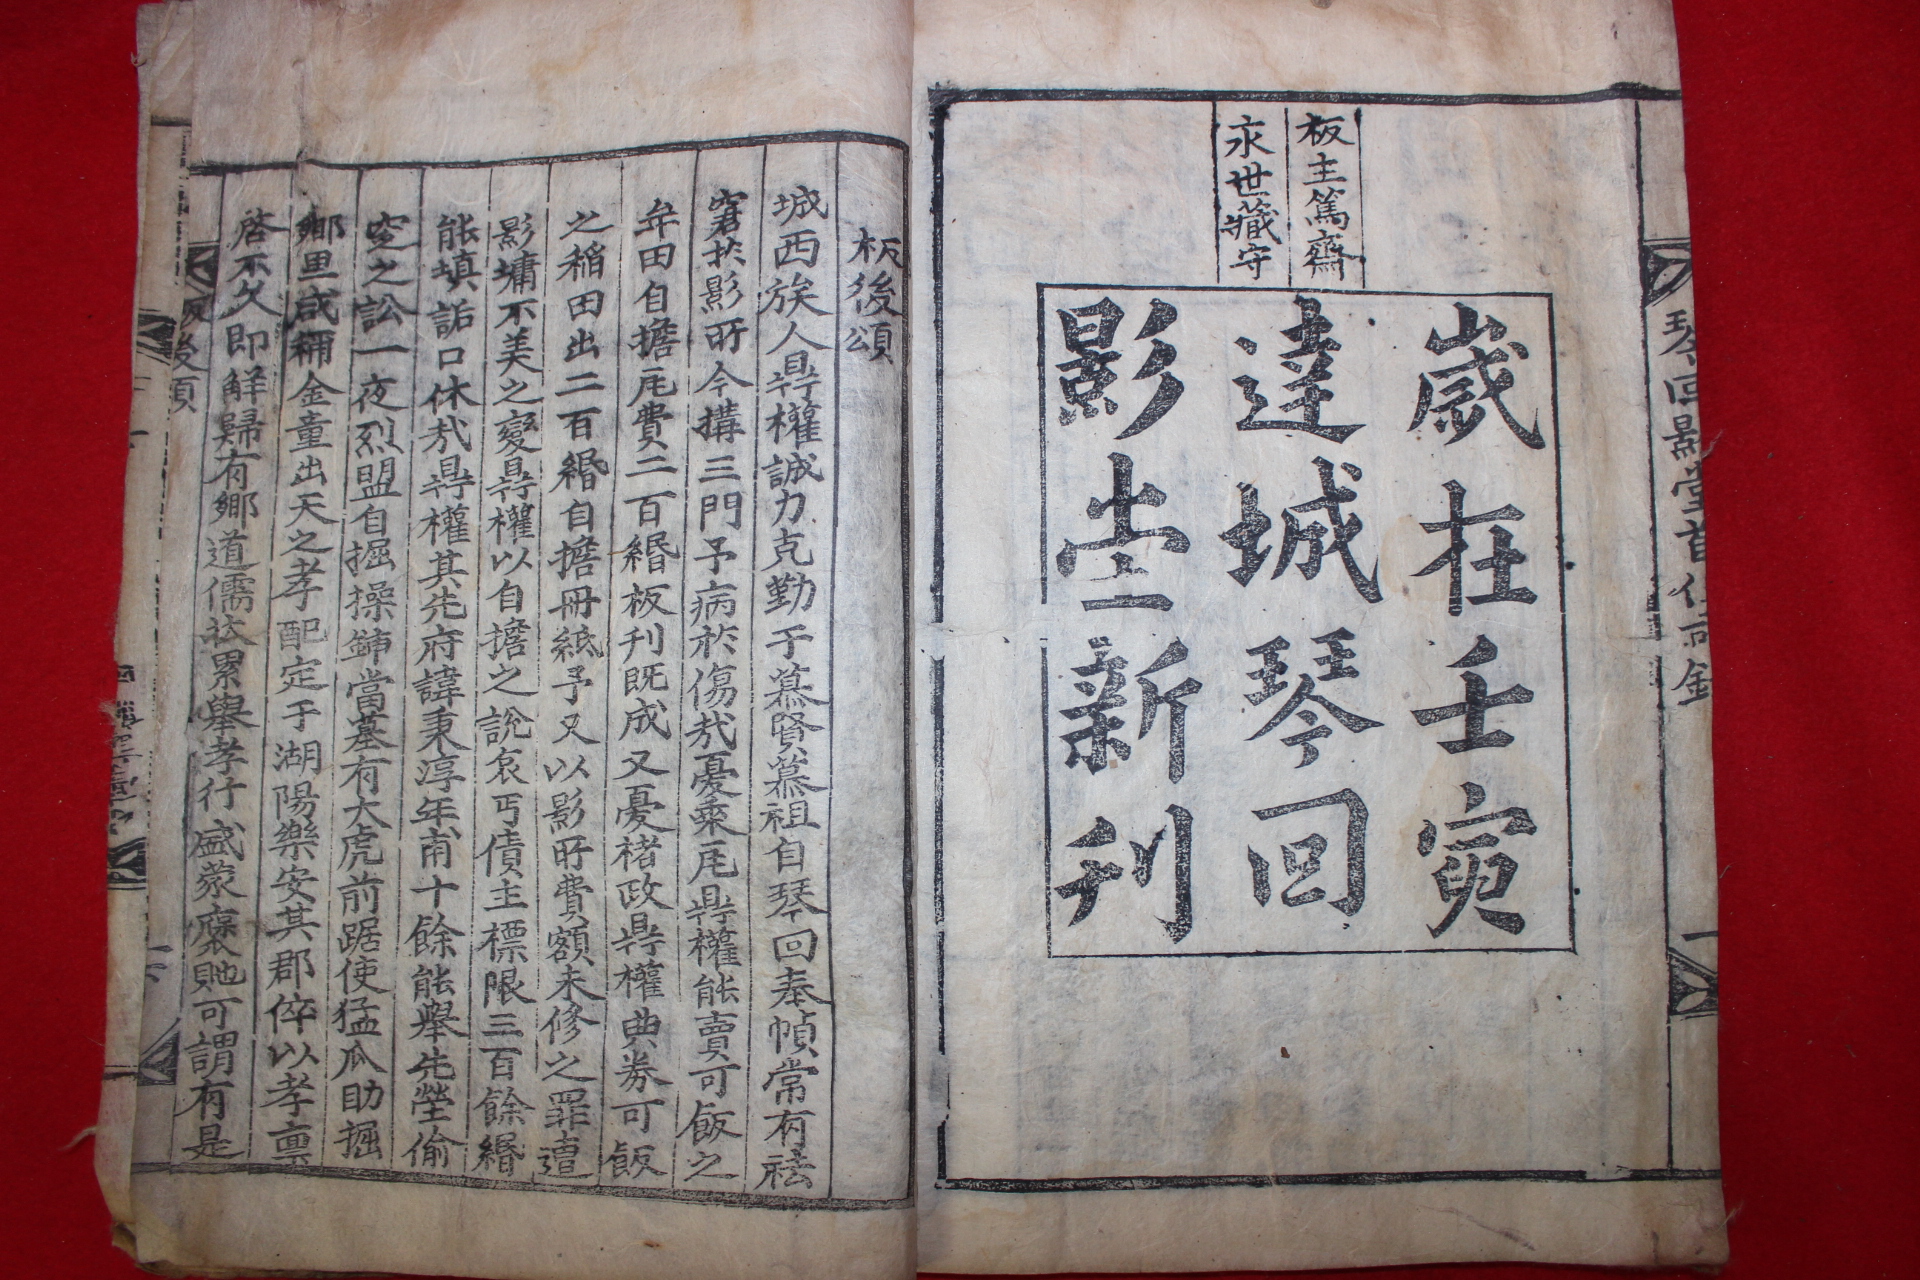 板主篤齋
永世藏守
歲在壬寅
達城琴回
影堂新刊
板後頌
城西族人㝵權誠力克勤于慕賢慕祖自琴回奉幀常有袪
窘於影所今搆三門予病於傷哉憂乘㡳㝵權能賣可飯之
年田自擔㡳費二百緡板刊既成又憂楮政㝵權典券可飯
之稻田出二百緡自擔冊紙予又以影所費額未修之罪遭
影墉不美之變㝵權以自擔之說哀丐債主標限三百餘緡
能塡詬口休哉㝵權其先府諱秉淳年甫十餘能舉先塋偷
窆之訟一夜烈盟自掘操鍤當墓有大虎前踞使猛瓜助掘
鄕里咸稱金童出天之孝配定于湖陽樂安其郡倅以孝稟
啓不久即解歸有鄕道儒狀累擧孝行盛蒙褒貤可謂有是
板後頌